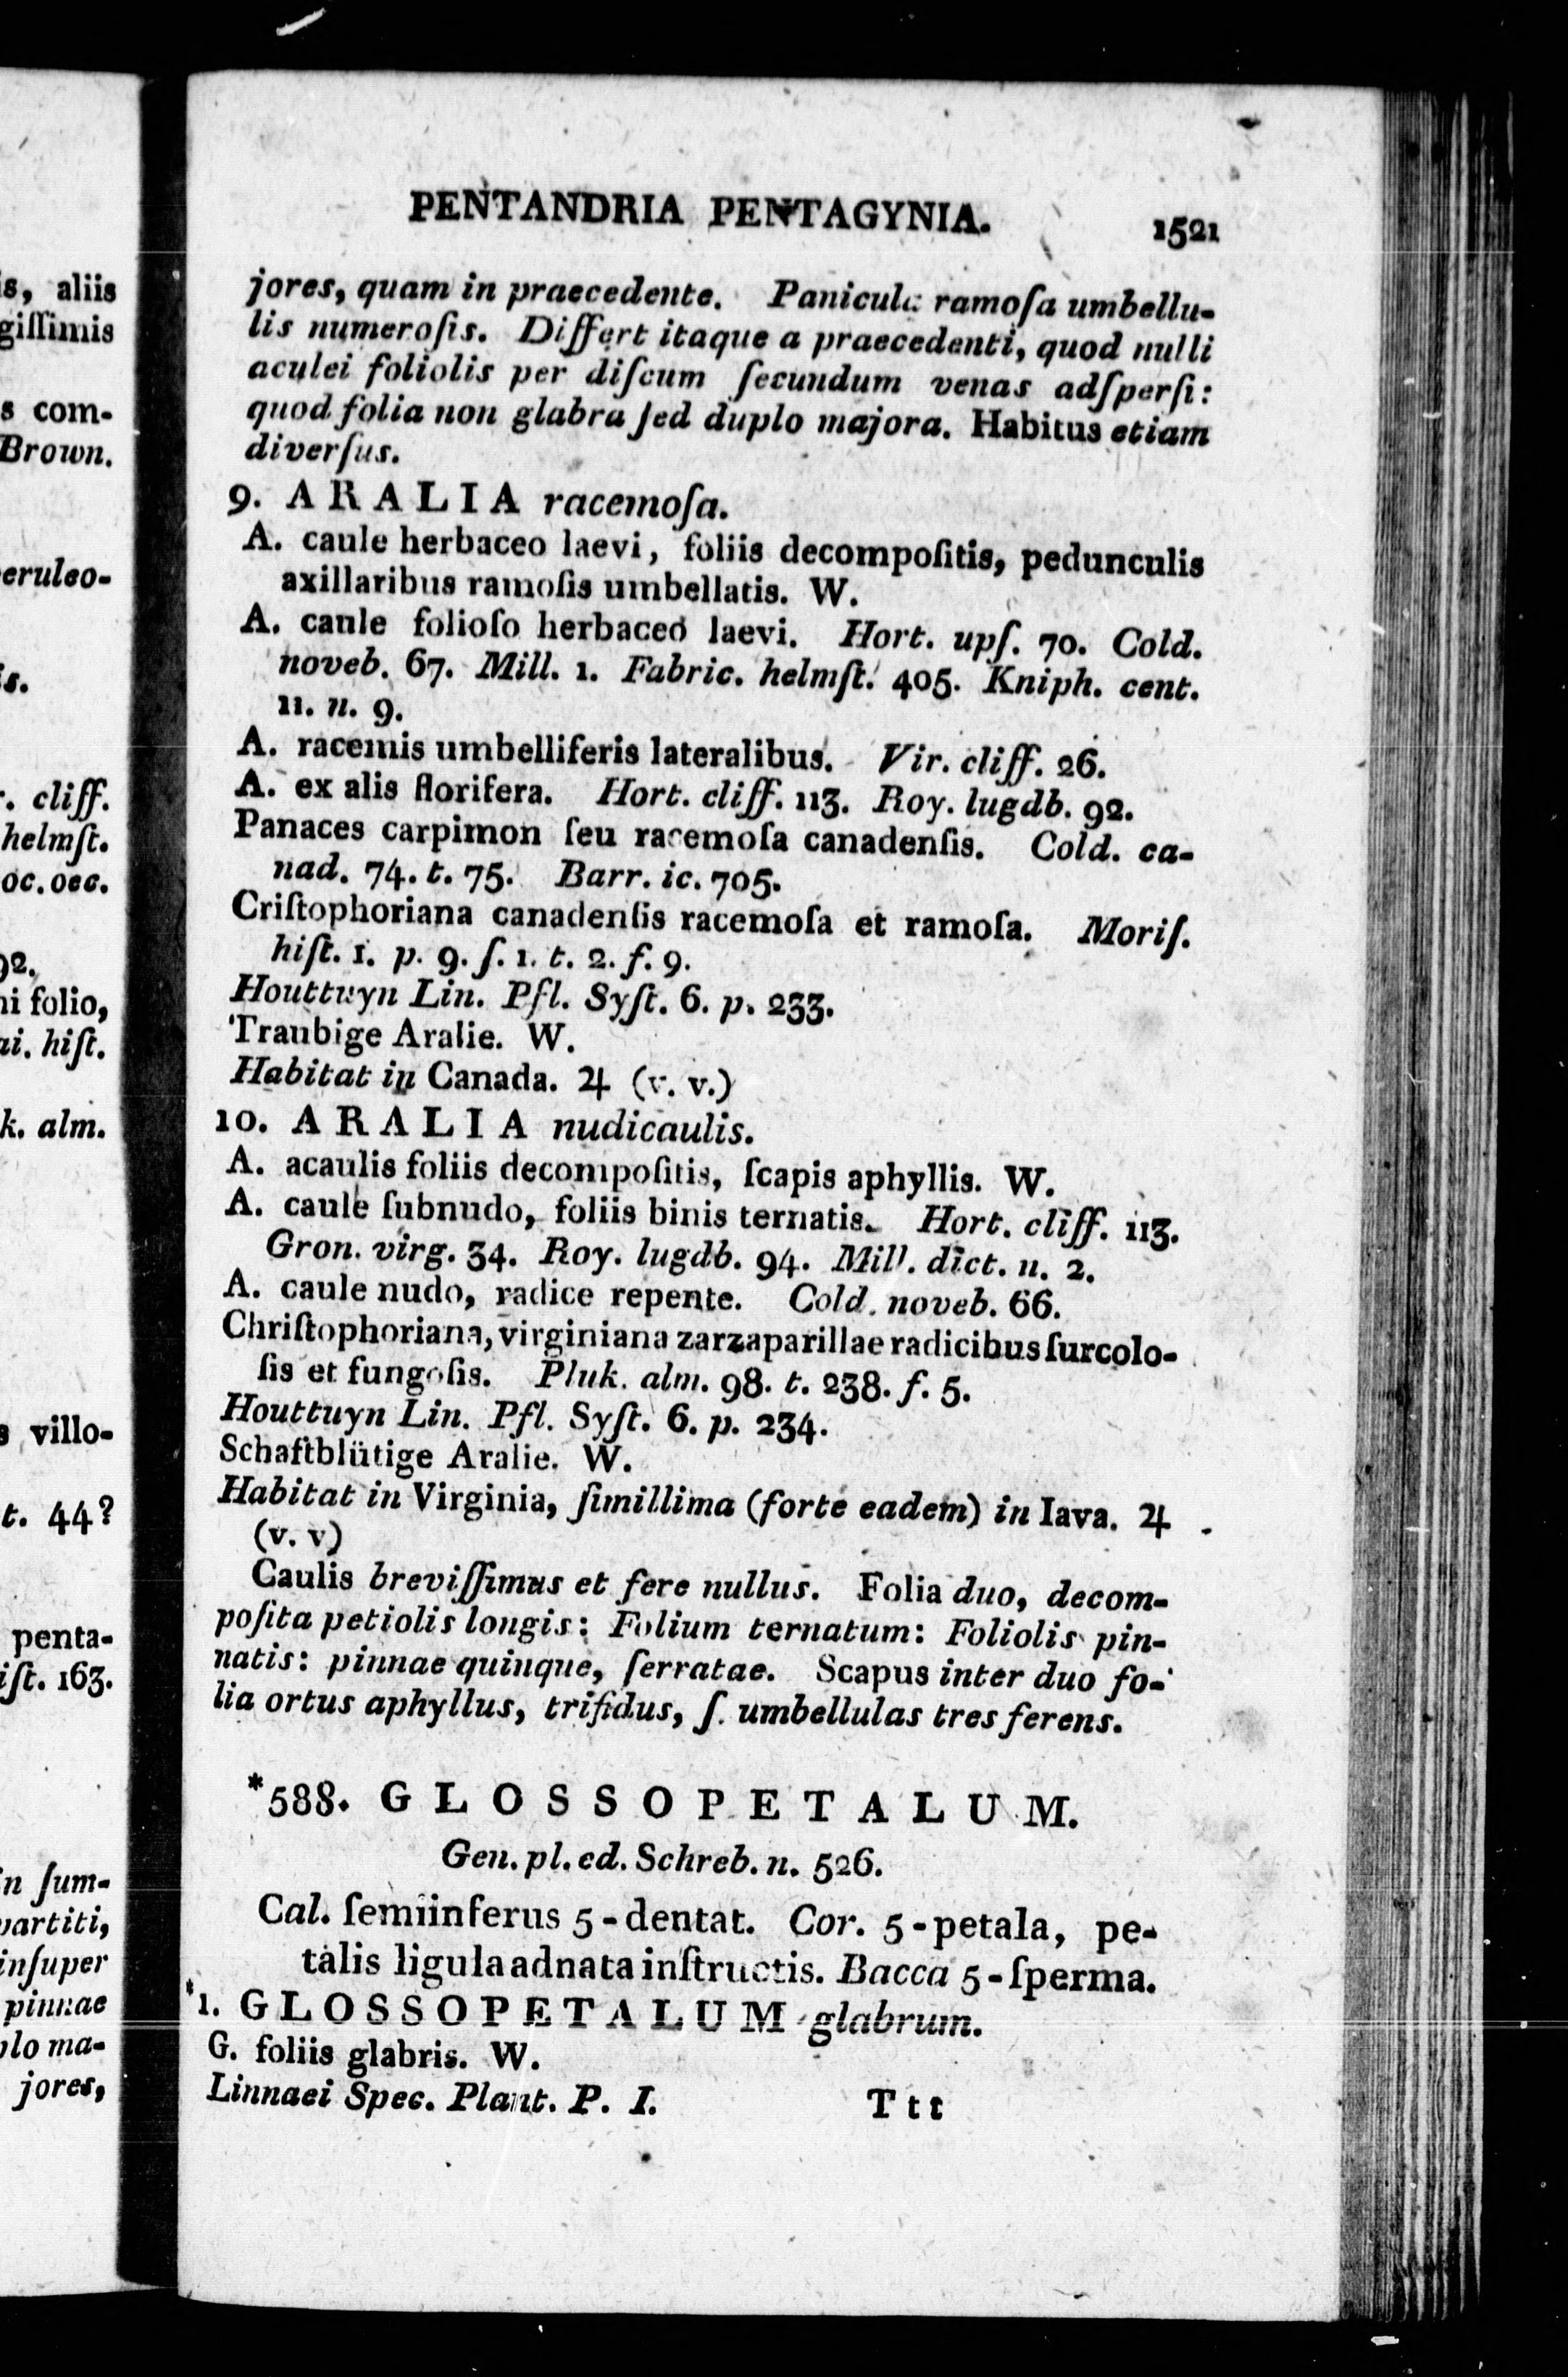 s, aliis
giſſimis
s com-
Brown.
eruleo-
s.
cliff.
helmſt.
oc. oec.
92.
ni folio,
ai. hiſt.
k. alm.
s villo-
t. 44?
penta-
iſt. 163.
in ſum-
partiti,
inſuper
pinnae
plo ma-
jores,
PENTANDRIA PENTAGYNIA. 1521
jores, quam in praecedente. Panicula ramoſa umbellu-
lis numeroſis. Differt itaque a praecedenti, quod nulli
aculei foliolis per diſcum ſecundum venas adſperſi:
quod folia non glabra ſed duplo majora. Habitus etiam
diverſus.
9. ARALIA racemoſa.
A. caule herbaceo laevi, foliis decompoſitis, pedunculis
axillaribus ramoſis umbellatis. W.
A. caule folioſo herbaceo laevi. Hort. upſ. 70. Cold.
noveb. 67. Mill. 1. Fabric. helmſt. 405. Kniph. cent.
11. n. 9.
A. racemis umbelliferis lateralibus. Vir. cliff. 26.
A. ex alis florifera. Hort. cliff. 113. Roy. lugdb. 92.
Panaces carpimon ſeu racemoſa canadenſis. Cold. ca-
nad. 74. t. 75. Barr. ic. 705.
Criſtophoriana canadenſis racemoſa et ramoſa. Moriſ.
hiſt. 1. p. 9. ſ. 1. t. 2. f. 9.
Houttuyn Lin. Pfl. Syſt. 6. p. 233.
Traubige Aralie. W.
Habitat in Canada. ♃ (v. v.)
10. ARALIA nudicaulis.
A. acaulis foliis decompoſitis, ſcapis aphyllis. W.
A. caule ſubnudo, foliis binis ternatis. Hort. cliff. 113.
Gron. virg. 34. Roy. lugdb. 94. Mill. dict. n. 2.
A. caule nudo, radice repente. Cold. noveb. 66.
Chriſtophoriana, virginiana zarzaparillae radicibus ſurcolo-
ſis et fungoſis. Pluk. alm. 98. t. 238. f. 5.
Houttuyn Lin. Pfl. Syſt. 6. p. 234.
Schaftblütige Aralie. W.
Habitat in Virginia, ſimillima (forte eadem) in Iava. ♃
(v. v)
Caulis breviſſimus et fere nullus. Folia duo, decom-
poſita petiolis longis: Folium ternatum: Foliolis pin-
natis: pinnae quinque, ſerratae. Scapus inter duo fo-
lia ortus aphyllus, trifidus, ſ. umbellulas tres ferens.
*588. GLOSSOPETALUM.
Gen. pl. ed. Schreb. n. 526.
Cal. ſemiinferus 5-dentat. Cor. 5-petala, pe-
talis ligula adnata inſtructis. Bacca 5-ſperma.
*1. GLOSSOPETALUM glabrum.
G. foliis glabris. W.
Linnaei Spec. Plant. P. I. Ttt